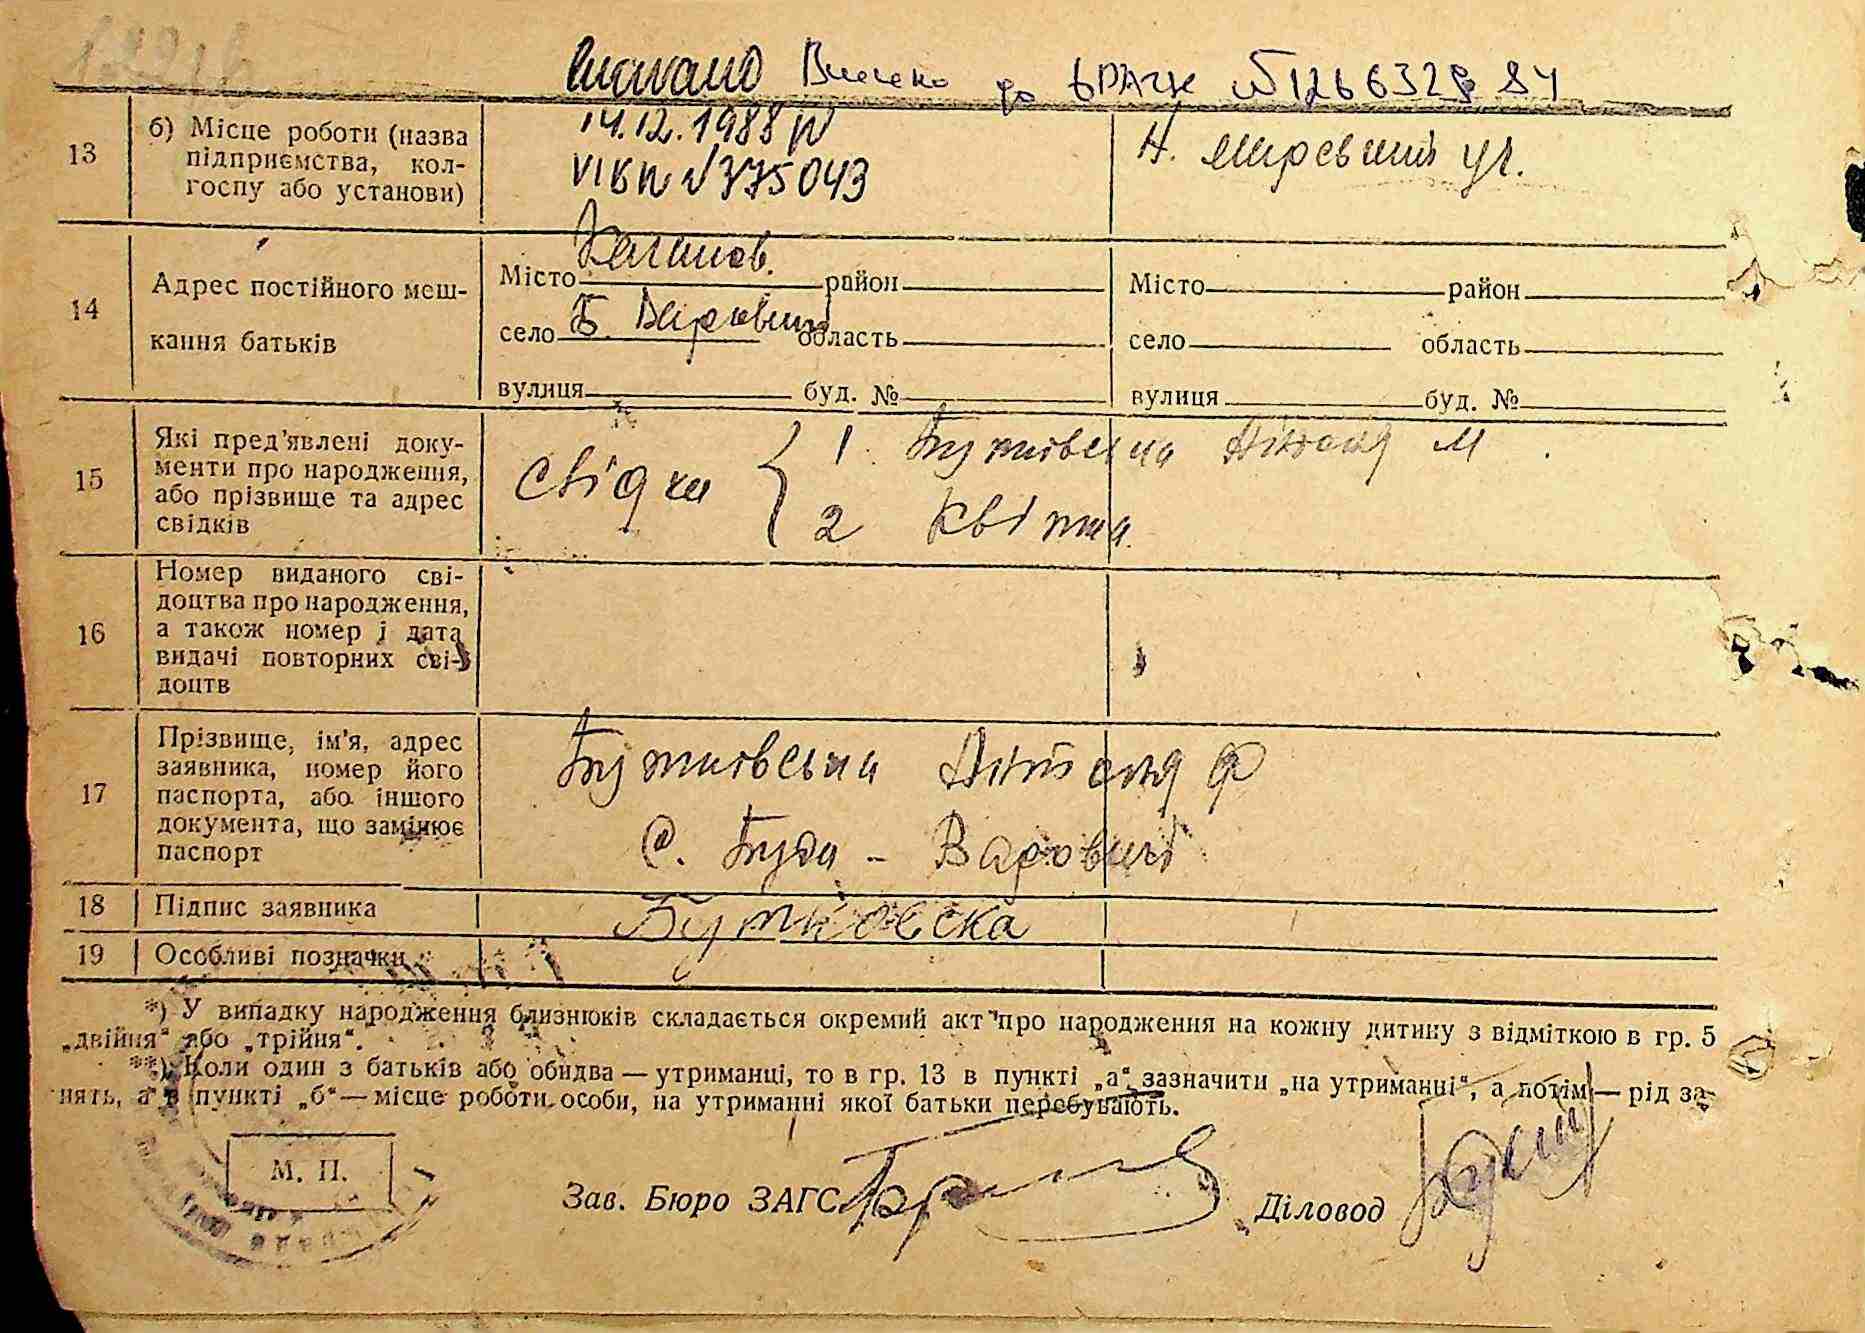 Внесено до ДРАЦС №126632984
13
б) Місце роботи (назва
підприємства, кол-
госпу або установи)
14.12.1988
VIБК №375043
14
Адрес постійного меш-
кання батьків
Місто район
село Б Варовичі область
вулиця буд. №
Місто район
село область
вулиця буд. №
15
Які пред'явлені доку-
менти про народження,
або прізвище та адрес
свідків
Свідки
1. Бутковська М
2 Квітка
16
Номер виданого сві-
доцтва про народження,
а також номер і дата
видачі повторних сві-
доцтв
17
Прізвище, ім'я, адрес
заявника, номер його
паспорта, або іншого
документа, що замінює
паспорт
Бутковська Ф
С. Буда - Варовичі
18
Підпис заявника
Бутковска
19
Особливі позначки
*) У випадку народження близнюків складається окремий акт про народження на кожну дитину з відміткою в гр. 5
„двійня“ або „трійня“.
**) Коли один з батьків або обидва — утриманці, то в гр. 13 в пункті „а“ зазначити „на утриманні“, а потім — рід за-
нять, а в пункті „б“ — місце роботи особи, на утриманні якої батьки перебувають.
М. П.
Зав. Бюро ЗАГС
Діловод